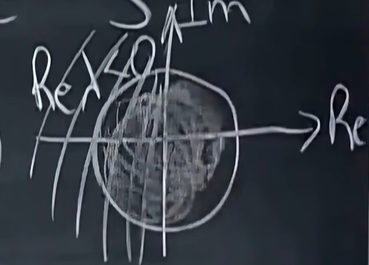 Im
Re λ<0
Re